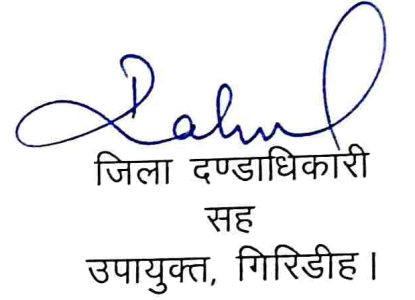 Rahul
जिला दण्डाधिकारी
सह
उपायुक्त, गिरिडीह।